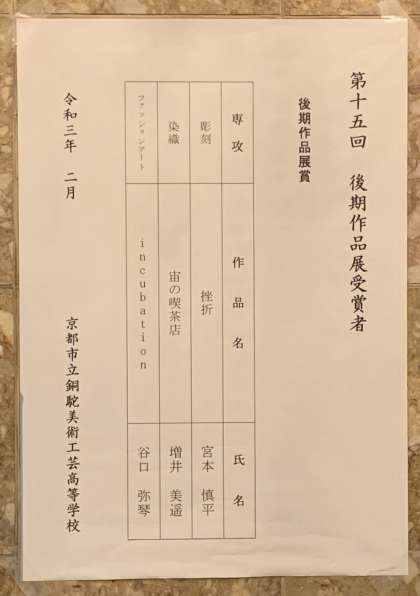 第十五回　後期作品展受賞者
後期作品展賞
専攻　作品名　氏名
彫刻　挫折　宮本　慎平
染織　宙の喫茶店　増井　美遥
ファッションアート　incubation　谷口　弥琴
令和三年　二月
京都市立銅駝美術工芸高等学校